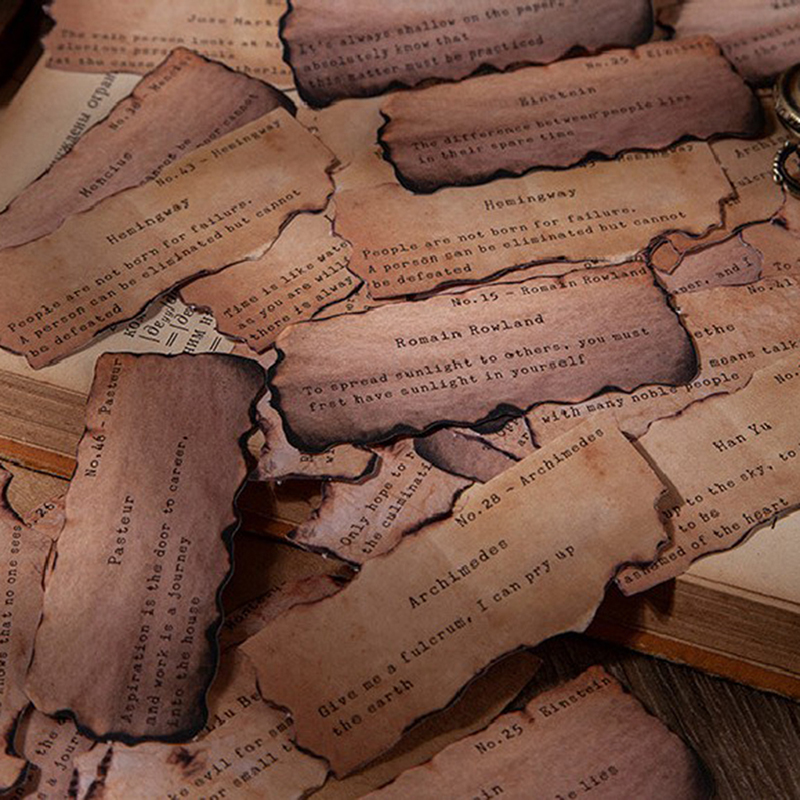 Jose Mart
It's always shallow on the paper,
absolutely know that
this matter must be practiced
No.25 - Einstein
Einstein
The difference between people lies
in their spare time
Mencius
No.43 - Hemingway
Hemingway
People are not born for failure.
A person can be eliminated but cannot
be defeated
Hemingway
People are not born for failure.
A person can be eliminated but cannot
be defeated
Time is like wate
as you are willi
there is alway
No.15 - Romain Rowland
Romain Rowland
To spread sunlight to others, you must
frst have sunlight in yourself
ethe
means talk
with many noble people
No.46 - Pasteur
Pasteur
Aspiration is the door to career,
and work is a journey
into the house
Only hope to r
the culminati
No.28 - Archimedes
Archimedes
Give me a fulcrum, I can pry up
the earth
Han Yu
up to the sky, to
to be
ashamed of the heart
knows that no one sees
No.25 - Einstein
le lies